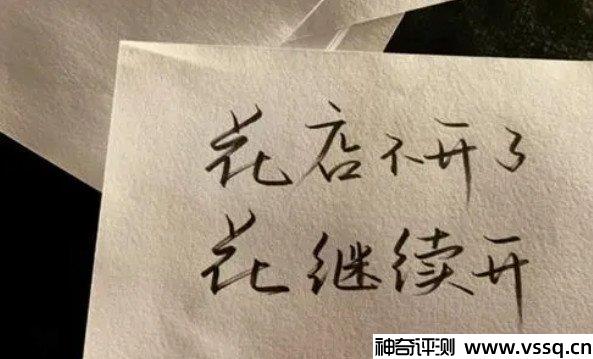 花店不开了
花继续开
神奇评测 www.vssq.cn